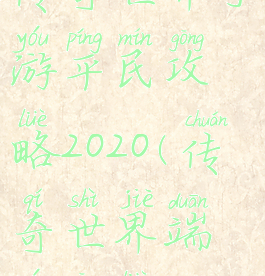 yóu píng mín gōng
游平民攻
lüè chuán
略2020(传
qí shì jiè duān
奇世界端